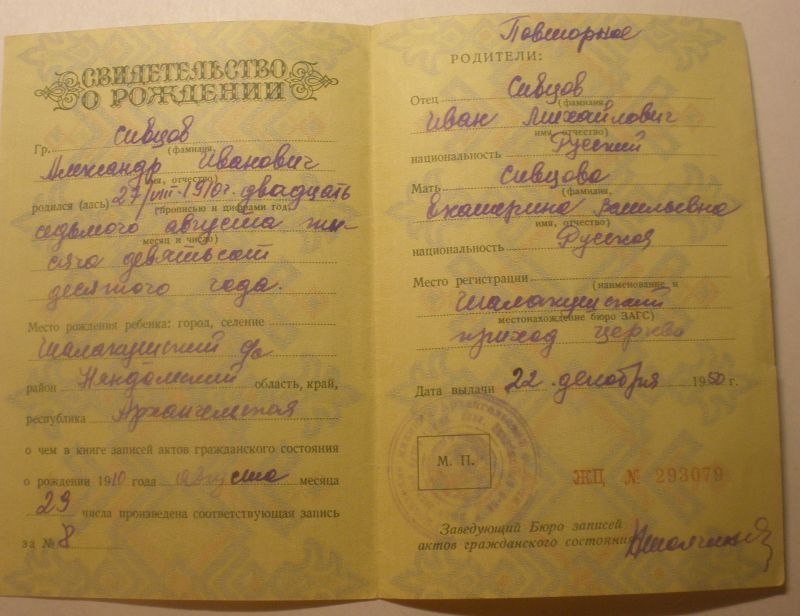 СВИДЕТЕЛЬСТВО
О РОЖДЕНИИ
Гр. Сивцов
(фамилия,
Александр Иванович
имя, отчество)
родился (лась) 27/VIII-1910г. двадцать
(прописью и цифрами год,
седьмого августа ты-
месяц и число)
сяча девятьсот
десятого года.
Место рождения ребенка: город, селение
Шалакушский
район Няндомский область, край,
республика Архангельская
о чем в книге записей актов гражданского состояния
о рождении 1910 года августа месяца
29 числа произведена соответствующая запись
за № 8
Повторное
РОДИТЕЛИ:
Отец Сивцов
(фамилия,
Иван Михайлович
имя, отчество)
национальность Русский
Мать Сивцова
(фамилия,
Екатерина Васильевна
имя, отчество)
национальность Русская
Место регистрации
(наименование и
Шалакушский
местонахождение бюро ЗАГС)
приход церкво
Дата выдачи 22 декабря 1950 г.
М. П.
ЖЦ № 293079
Заведующий Бюро записей
актов гражданского состояния